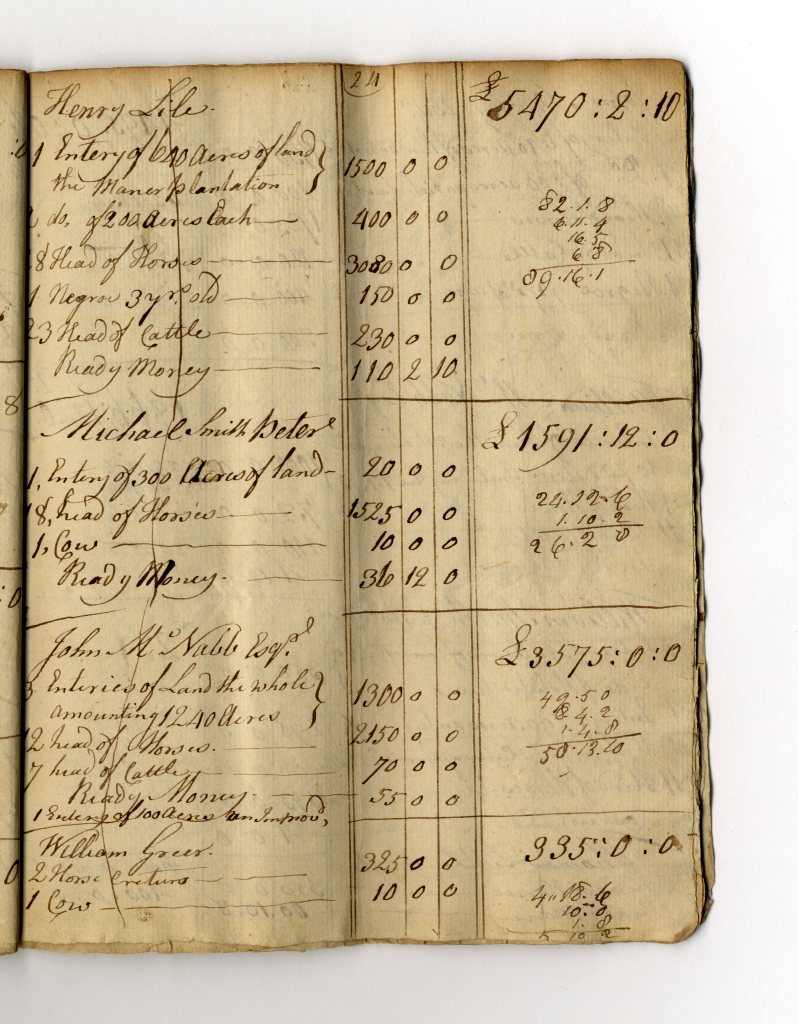 24
Henry Lile. £5470:2:10
1 Entery of 640 Acres of land }
the Maner plantation } 1500 0 0
do, of 200 Acres Each 400 0 0
8 Head of Horses 3080 0 0
1 Negroe 3 yrs. old 150 0 0
23 Head of Cattle 230 0 0
Ready Money 110 2 10
82.1.8
6.11.4
16.5
6.8
89.16.1
Michael Smith Peter £1591:12:0
1, Entery of 300 Acres of land 20 0 0
18, head of Horses 1525 0 0
1, Cow 10 0 0
Ready Money. 36 12 0
24.12.6
1.10.2
26.2.8
John McNabb Esqr. £3575:0:0
3 Enteries of Land the whole }
amounting 1240 Acres } 1300 0 0
12 head of Horses. 2150 0 0
7 head of Cattle 70 0 0
Ready Money 55 0 0
1 Entery of 100 Acres un Improvd,
49.5.0
1.4.8
50.13.10
William Greer. 335:0:0
2 Horse creturs 325 0 0
1 Cow 10 0 0
4.18.6
10.0
1.8
5 10 2
8
:0
0